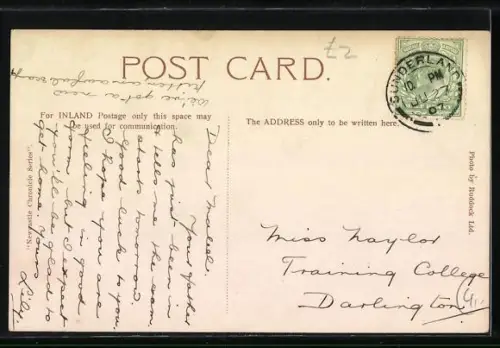 £2
POST CARD.
We've got a new
kitten
For INLAND Postage only this space may
be used for communication.
The ADDRESS only to be written here.
SUNDERLAND
PM
07
Dear Mabel.
Your father
has just been in
& tells me the exam.
starts tomorrow.
Good luck to you.
I hope you are
feeling in good
form but I expect
you'll be glad to
get home. Yours
Lily.
Miss Naylor
Training College
Darlington
"Newcastle Chronicle Series".
Photo by Ruddock Ltd.